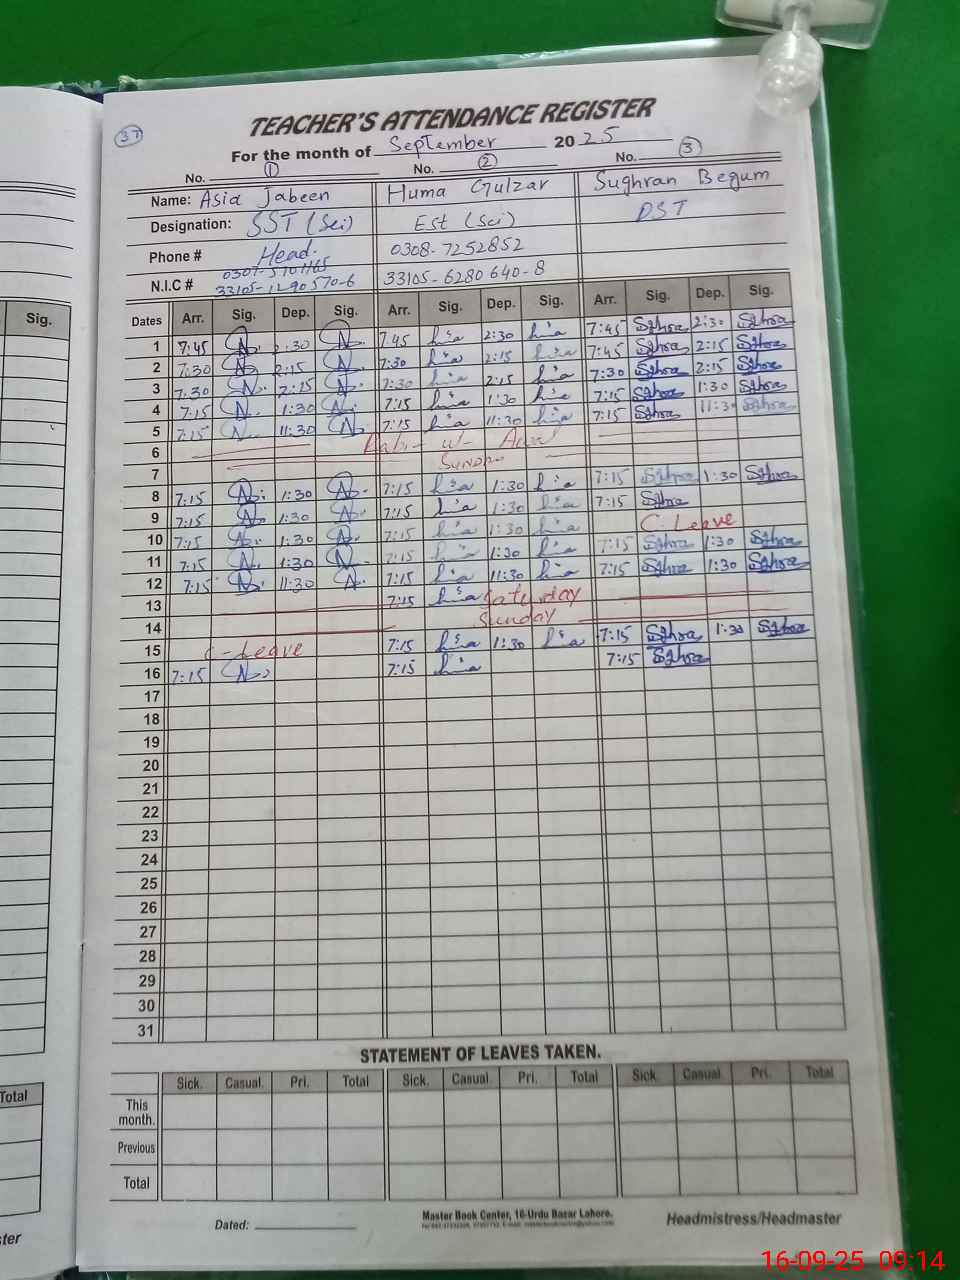 37
TEACHER'S ATTENDANCE REGISTER
For the month of September 2025
No. 1 No. 2 No. 3
Name: Asia Jabeen Huma Gulzar Sughran Begum
Designation: SST (Sci) Est (Sci) PST
Phone # Head. 0308-7252852
N.I.C # 33105-6280640-8
Sig. Dates Arr. Sig. Dep. Sig. Arr. Sig. Dep. Sig. Arr. Sig. Dep. Sig.
1 7:45 2:30 7:45 2:30 7:45 Sghra 2:30 Sghra
2 7:30 2:15 7:30 2:15 7:45 Sghra 2:15 Sghra
3 7:30 2:15 7:30 2:15 7:30 Sghra 2:15 Sghra
4 7:15 1:30 7:15 1:30 7:15 Sghra 1:30 Sghra
5 7:15 11:30 7:15 11:30 7:15 Sghra 11:30 Sghra
6
7
8 7:15 1:30 7:15 1:30 7:15 Sghra 1:30 Sghra
9 7:15 1:30 7:15 1:30 7:15 Sghra
10 7:15 1:30 7:15 1:30 C. Leave
11 7:15 1:30 7:15 1:30 7:15 Sghra 1:30 Sghra
12 7:15 11:30 7:15 11:30 7:15 Sghra 1:30 Sghra
13 7:15 Saturday
14 Sunday
15 C-Leave 7:15 1:30 7:15 Sghra 1:30 Sghra
16 7:15 7:15 7:15 Sghra
17
18
19
20
21
22
23
24
25
26
27
28
29
30
31
STATEMENT OF LEAVES TAKEN.
Total Sick. Casual. Pri. Total Sick. Casual. Pri. Total Sick. Casual. Pri. Total
This month.
Previous
Total
Master Book Center, 16-Urdu Bazar Lahore.
Dated: Headmistress/Headmaster
16-09-25 09:14